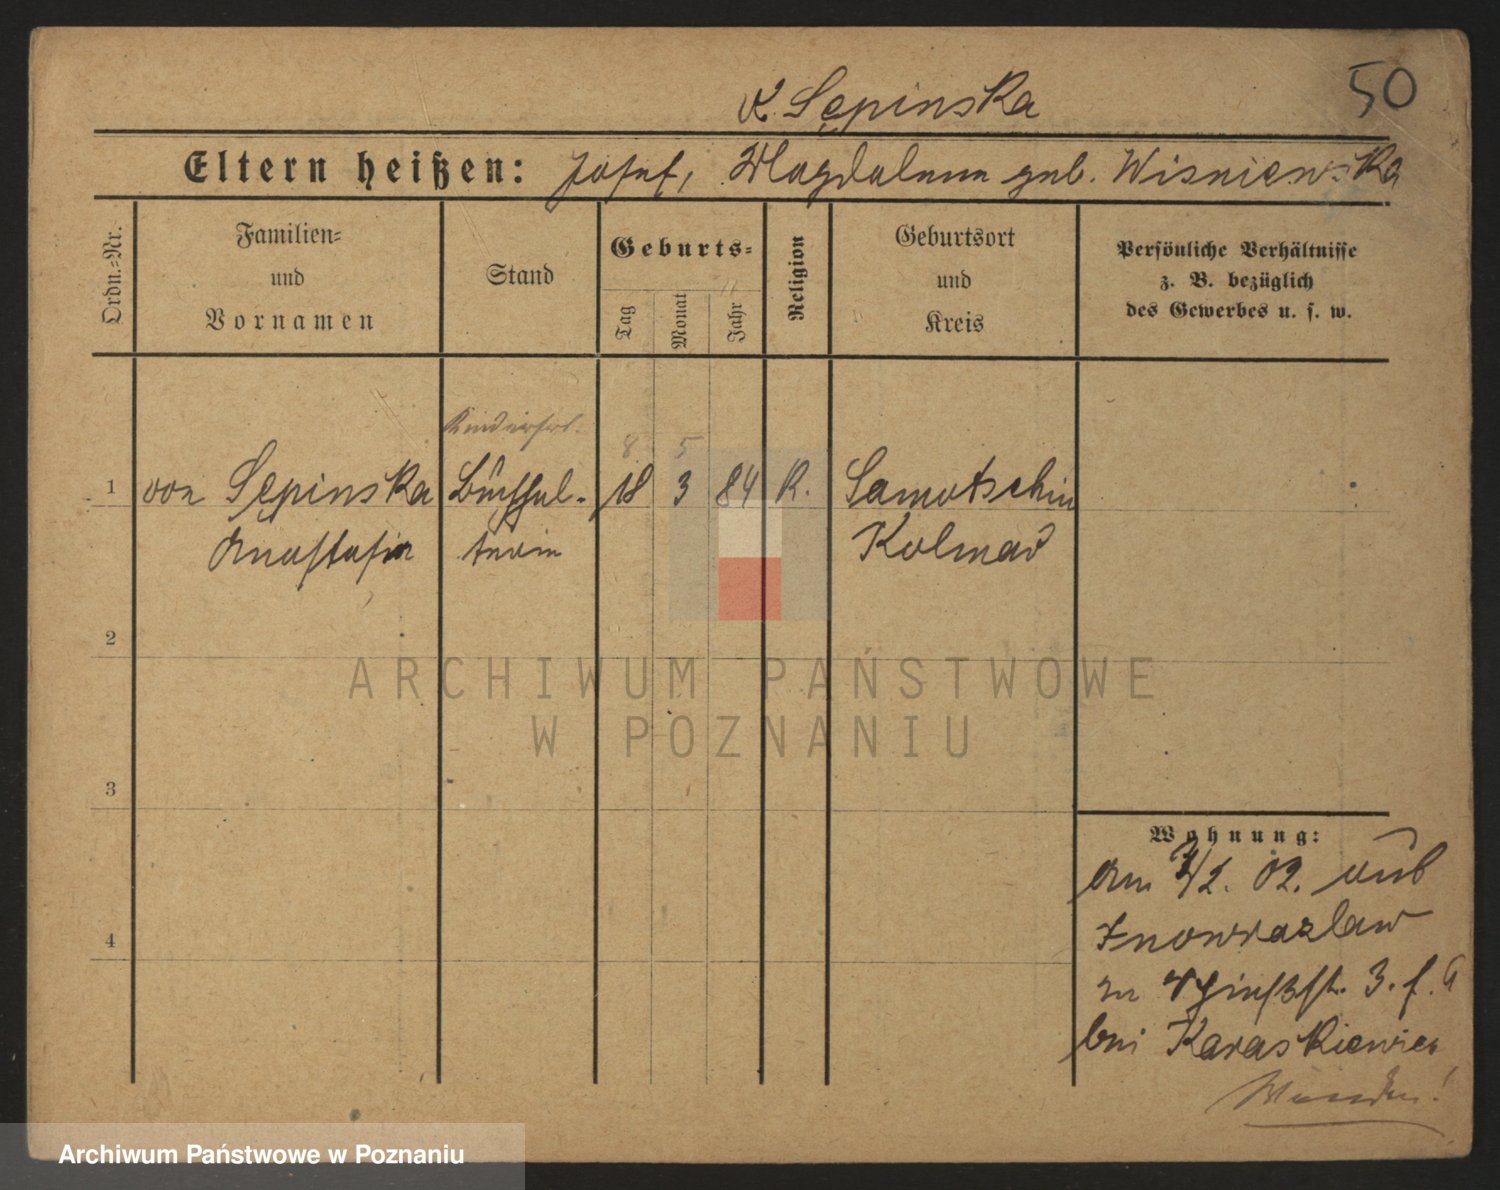 v. Sępinska
50
Eltern heißen: Josef, Magdalena geb. Wisniewska
Ordn.-Nr.
Familien-
und
Vornamen
Stand
Geburts-
Tag
Monat
Jahr
Religion
Geburtsort
und
Kreis
Persönliche Verhältnisse
z. B. bezüglich
des Gewerbes u. s. w.
Kinderfrl.
8 5
1 von Sępinska Büffel- 18 3 84 K. Samotschin
Anastasia terin Kolmar
2
ARCHIWUM PAŃSTWOWE
W POZNANIU
3
Wohnung:
Am 2. 02. aus
Inowrazlaw
4
3. f. a
bei Karaskiewicz
Wenden!
Archiwum Państwowe w Poznaniu